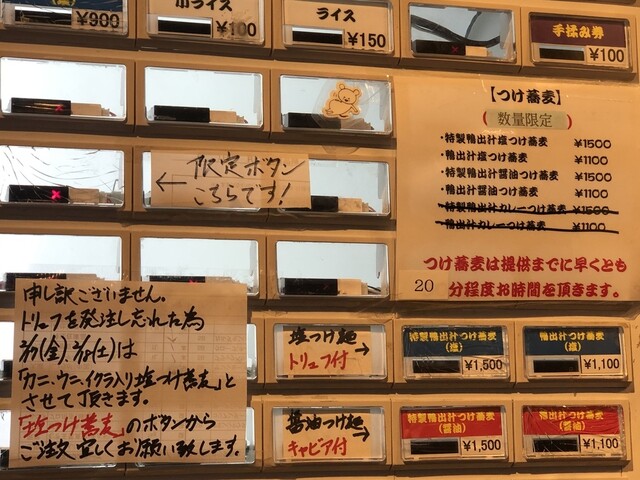 ¥900
小ライス
¥100
ライス
¥150
手揉み券
¥100
【つけ蕎麦】
数量限定
・特製鴨出汁塩つけ蕎麦 ¥1500
・鴨出汁塩つけ蕎麦 ¥1100
・特製鴨出汁醤油つけ蕎麦 ¥1500
・鴨出汁醤油つけ蕎麦 ¥1100
・特製鴨出汁カレーつけ蕎麦 ¥1500
・鴨出汁カレーつけ蕎麦 ¥1100
つけ蕎麦は提供までに早くとも
20 分程度お時間を頂きます。
← 限定ボタン
こちらです!
申し訳ございません。
トリュフを発注し忘れた為
(金)、(土)は
「カニ、ウニ、イクラ入り塩つけ蕎麦」と
させて頂きます。
「塩つけ蕎麦」のボタンから
ご注文宜しくお願い致します。
塩つけ麺→
トリュフ付
特製鴨出汁つけ蕎麦
(塩)
¥1,500
鴨出汁つけ蕎麦
(塩)
¥1,100
醤油つけ麺→
キャビア付
特製鴨出汁つけ蕎麦
(醤油)
¥1,500
鴨出汁つけ蕎麦
(醤油)
¥1,100